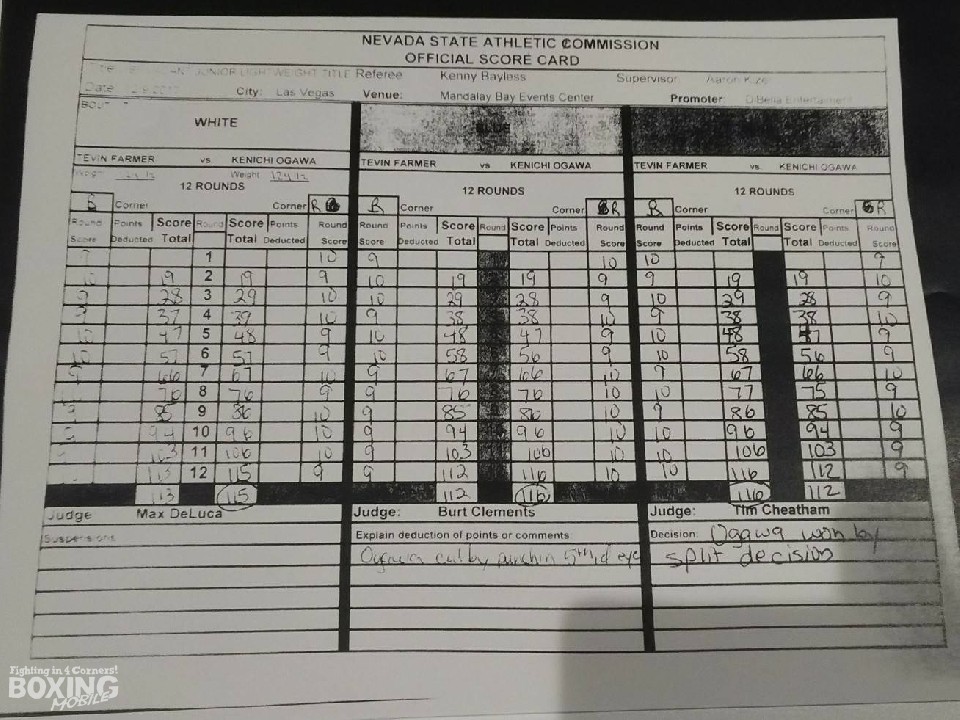 NEVADA STATE ATHLETIC COMMISSION
OFFICIAL SCORE CARD
JUNIOR LIGHTWEIGHT TITLE Referee Kenny Bayless Supervisor
Date City: Las Vegas Venue: Mandalay Bay Events Center Promoter: DiBella Entertainment
BOUT
WHITE
TEVIN FARMER vs KENICHI OGAWA TEVIN FARMER vs KENICHI OGAWA TEVIN FARMER vs. KENICHI OGAWA
Weight
12 ROUNDS 12 ROUNDS 12 ROUNDS
B Corner Corner R B Corner Corner R B Corner Corner R
Round Points Score Round Score Points Round Round Points Score Round Score Points Round Round Points Score Round Score Points Round
Score Deducted Total Total Deducted Score Score Deducted Total Total Deducted Score Score Deducted Total Total Deducted Score
1 10 9 10 10 9
10 19 2 19 9 10 19 19 9 9 19 19 10
9 28 3 29 10 10 29 28 9 10 29 28 9
9 37 4 39 10 9 38 38 10 9 38 38 10
10 47 5 48 9 10 48 47 9 10 48 47 9
10 57 6 57 9 10 58 56 9 10 58 56 9
9 66 7 67 10 9 67 66 10 9 67 66 10
76 8 76 9 9 76 76 10 10 77 75 9
9 85 9 86 10 9 85 86 10 9 86 85 10
94 10 96 10 9 94 96 10 10 96 94 9
103 11 106 10 9 103 106 10 10 106 103 9
113 12 115 9 9 112 116 10 10 116 112 9
113 115 112 116 116 112
Judge Max DeLuca Judge: Burt Clements Judge: Tim Cheatham
Suspensions Explain deduction of points or comments Decision: Ogawa won by
Ogawa cut by punch in 5th, eye split decision
Fighting in 4 Corners!
BOXING
MOBILE